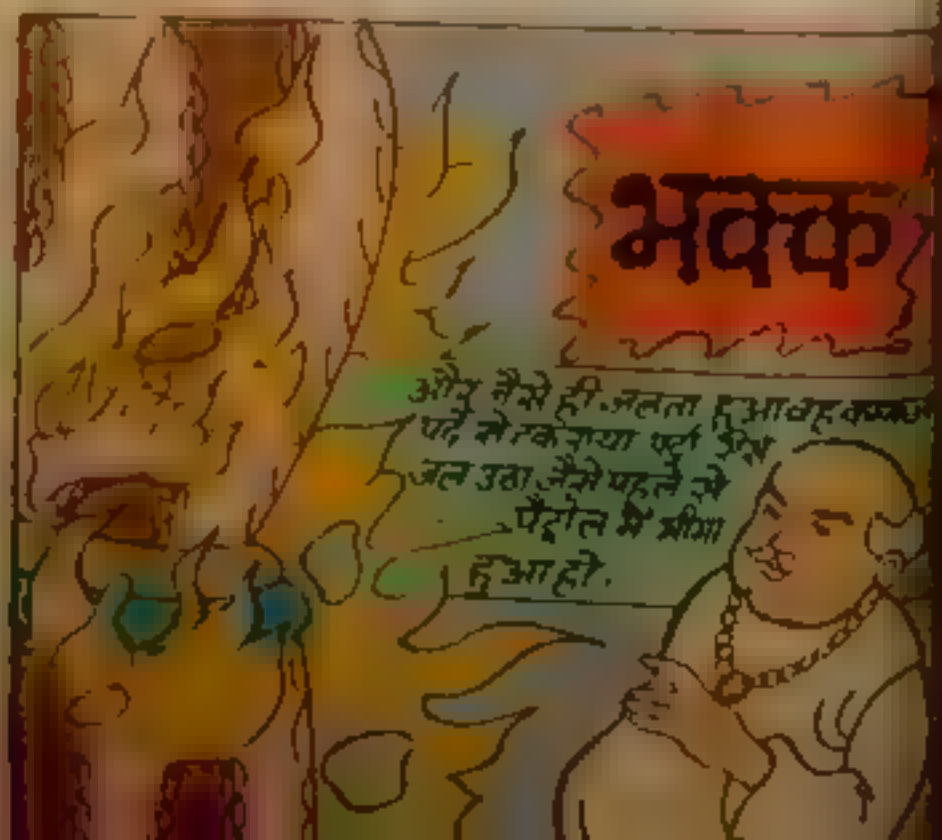 भक्क
और जैसे ही जलता हुआ वह
पर्दे से टकराया पर्दा
जल उठा जैसे पहले से
पैट्रोल में भीगा
हुआ हो.